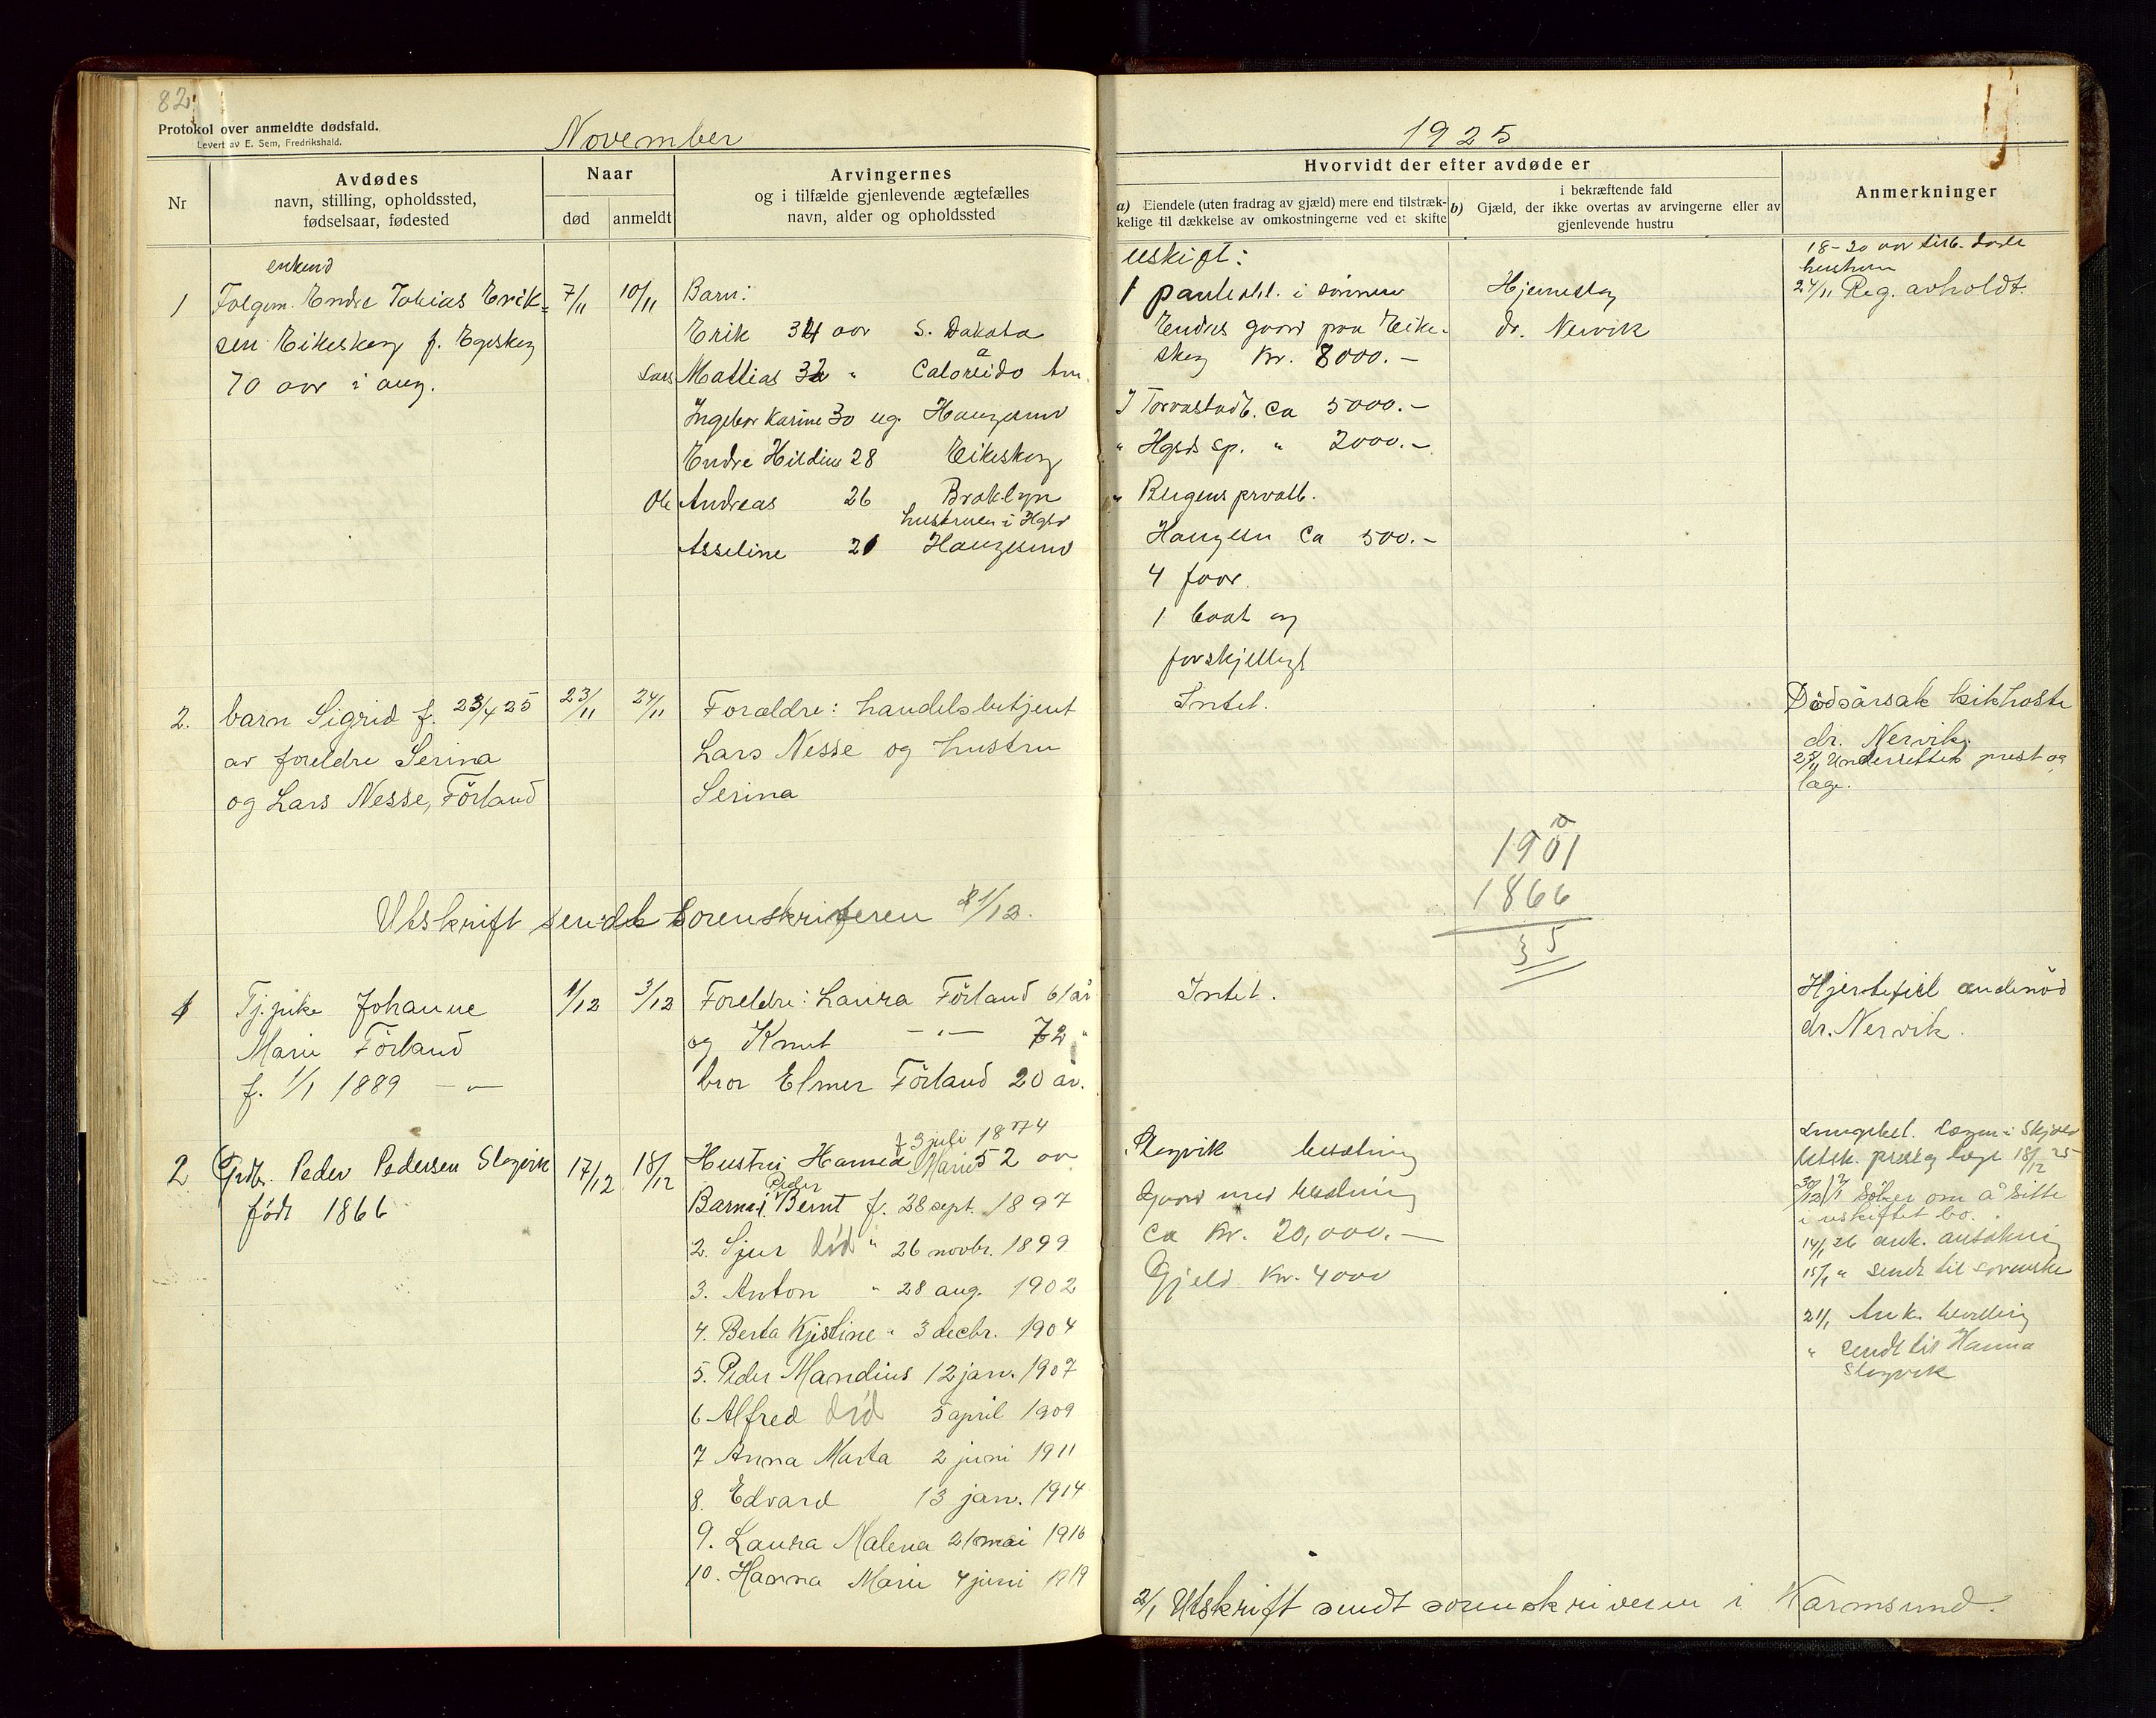 82
Protokol over anmeldte dødsfald.
Levert av E. Sem, Fredrikshald.
November
1925
Nr
Avdødes
navn, stilling, opholdssted,
fødselsaar, fødested
Naar
død
anmeldt
Arvingernes
og i tilfælde gjenlevende ægtefælles
navn, alder og opholdssted
Hvorvidt der efter avdøde er
a) Eiendele (uten fradrag av gjæld) mere end tilstræk-
kelige til dækkelse av omkostningerne ved et skifte
i bekræftende fald
b) Gjæld, der ikke overtas av arvingerne eller av
gjenlevende hustru
Anmerkninger
1
enkemd
Folgem. Endre Tobias Erik-
sen Eikeskog f. Egeskog
70 aar i aug.
7/11
10/11
Barn:
Erik 34 aar S. Dakota
Lars Mattias 32 " Calorado Am.
Ingebor Karine 30 ug. Haugesund
Endre Hildius 28 Eikeskog
Ole Andreas 26 Broklyn
hustruen i Hgsd
Asseline 21 Haugesund
uskift:
1 panteobl. i sønnen
Endres gaard paa Eike-
skog Kr. 8000.-
I Torvastadb. ca 5000.-
" Hgsds sp. " 2000.-
" Bergens privatb.
Haugesu ca 500.-
4 faar
1 baat og
forskjelligt
Hjerneslag
dr. Nervik
18-20 aar
24/11 Reg. avholdt.
2.
barn Sigrid f. 23/4 25
av foreldre Serina
og Lars Nesse, Förland
23/11
24/11
Forældre: handelsbetjent
Lars Nesse og hustru
Serina
Intet.
Dødsårsak kikhoste
dr. Nervik.
25/11 Underrettet prest og
læge.
1901
1866
35
Utskrift sendt sorenskriveren 1/12.
1
Tj.pike Johanne
Marie Förland
f. 1/1 1889 - " -
1/12
3/12
Foreldre: Laura Förland 61 år
og Knut - " - 72 "
bror Elmer Förland 20 år.
Intet.
Hjertefeil andenöd
dr. Nervik.
2
Grdbr. Peder Pedersen Slogvik
født 1866
17/12
18/12
f 3 juli 1874
Hustru Hanna Marie 52 aar
Barn: 1. Peder Bernt f. 28 sept. 1897
2. Sjur död " 26 novbr. 1899
3. Anton " 28 aug. 1902
4. Berta Kjistine " 3 decbr. 1904
5. Peder Mandius 12 jan. 1907
6 Alfred död 5 april 1909
7 Anna Marta 2 juni 1911
8. Edvard 13 jan. 1914
9. Laura Malena 21 mai 1916
10. Hanna Marie 4 juni 1919
Slogvik besetning
Gaard med besetning
ca kr. 20,000.-
Gjeld kr. 4000
Lungebet. lægen i Skjold
Utsk. prest og læge 18/12 25
Søker om å sitte
i uskiftet bo.
14/1 26 ank. ansøkning
15/1 " sendt til sorenskr
21/1 Ank. bevilling
" sendt til Hanna
Slogvik
2/1 Utskrift sendt sorenskriveren i Karmsund.